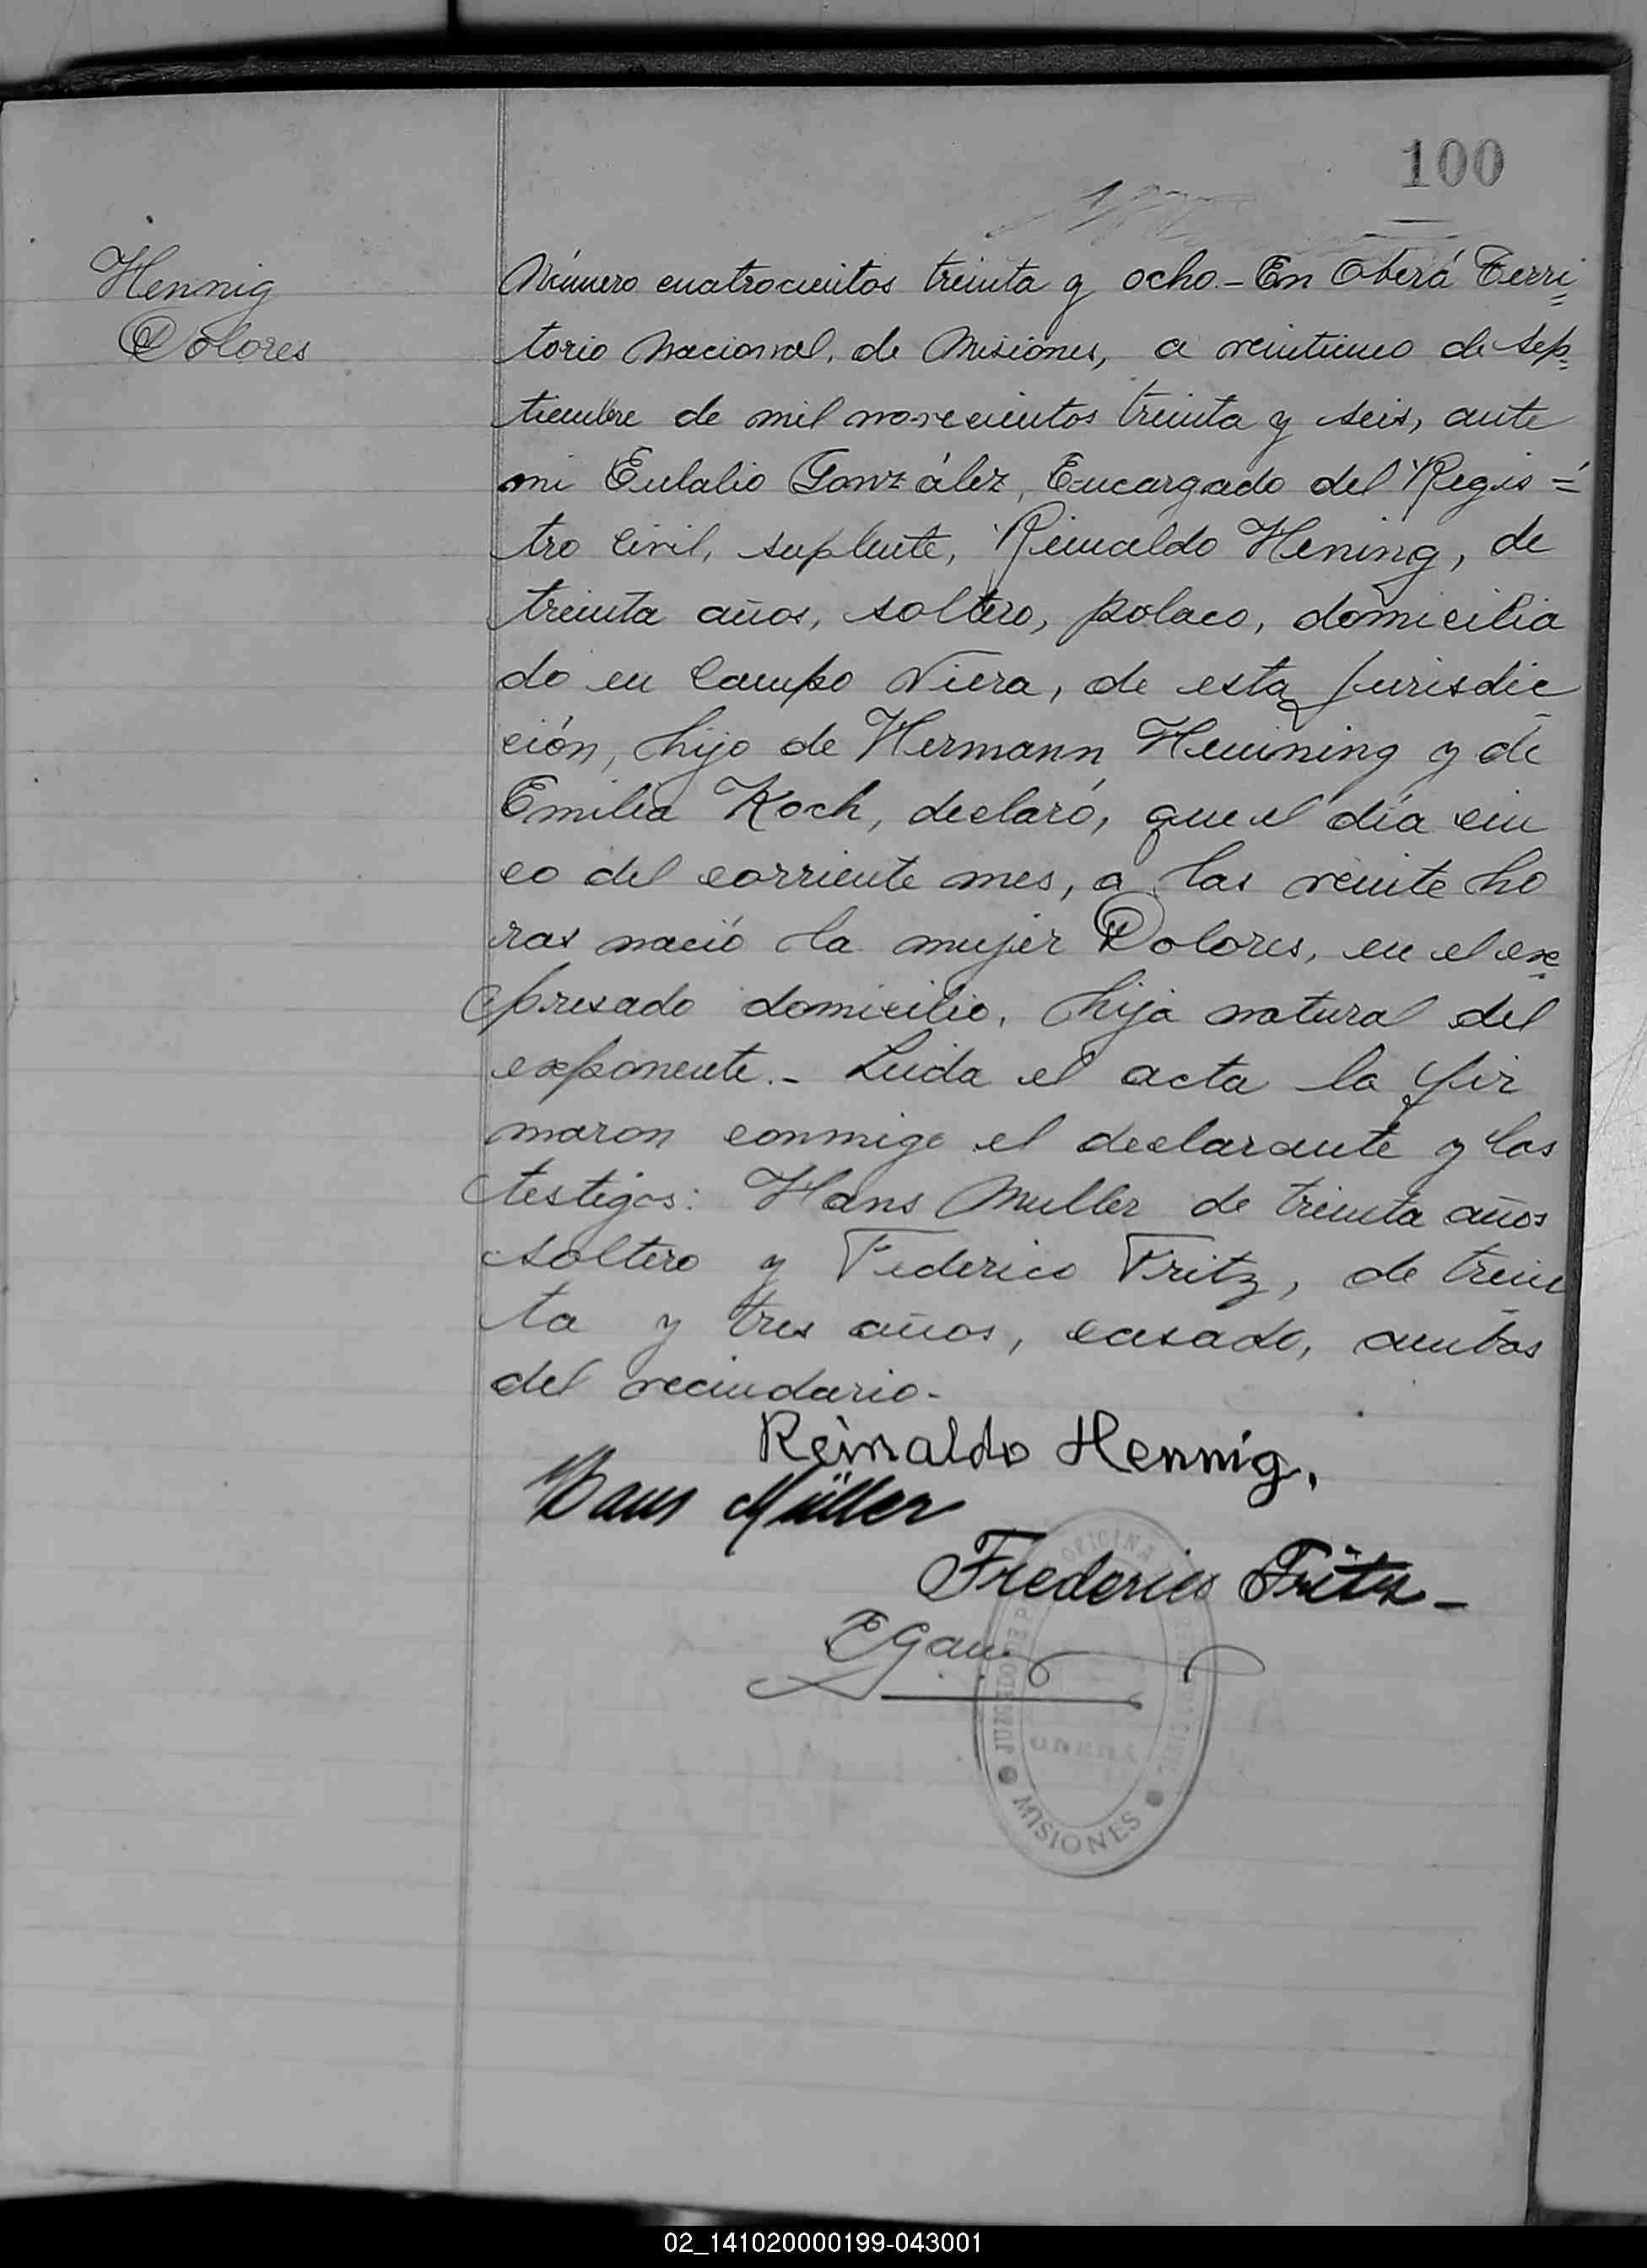 100
Hennig
Dolores
Número cuatrocientos treinta y ocho.- En Oberá Terri=
torio Nacional, de Misiones, a veintiuno de Sep=
tiembre de mil novecientos treinta y seis, ante
mi Eulalio González, Encargado del Regis=
tro Civil, suplente, Reinaldo Hening, de
treinta años, soltero, polaco, domicilia
do en Campo Viera, de esta jurisdic
ción, hijo de Hermann Heninning y de
Emilia Koch, declaró, que el día cin
co del corriente mes, a las veinte ho
ras nació la mujer Dolores, en el ex=
presado domicilio, hija natural del
exponente.- Leida el acta la fir
maron conmigo el declarante y los
testigos: Hans Muller de treinta años
soltero y Federico Fritz, de trein
ta y tres años, casado, ambos
del vecindario.-
Reinaldo Hennig.
Hans Müller
Frederico Fritz-
EGon
OFICINA
JUZGADO DE P
CIVIL
OBERÁ
MISIONES
02_141020000199-043001